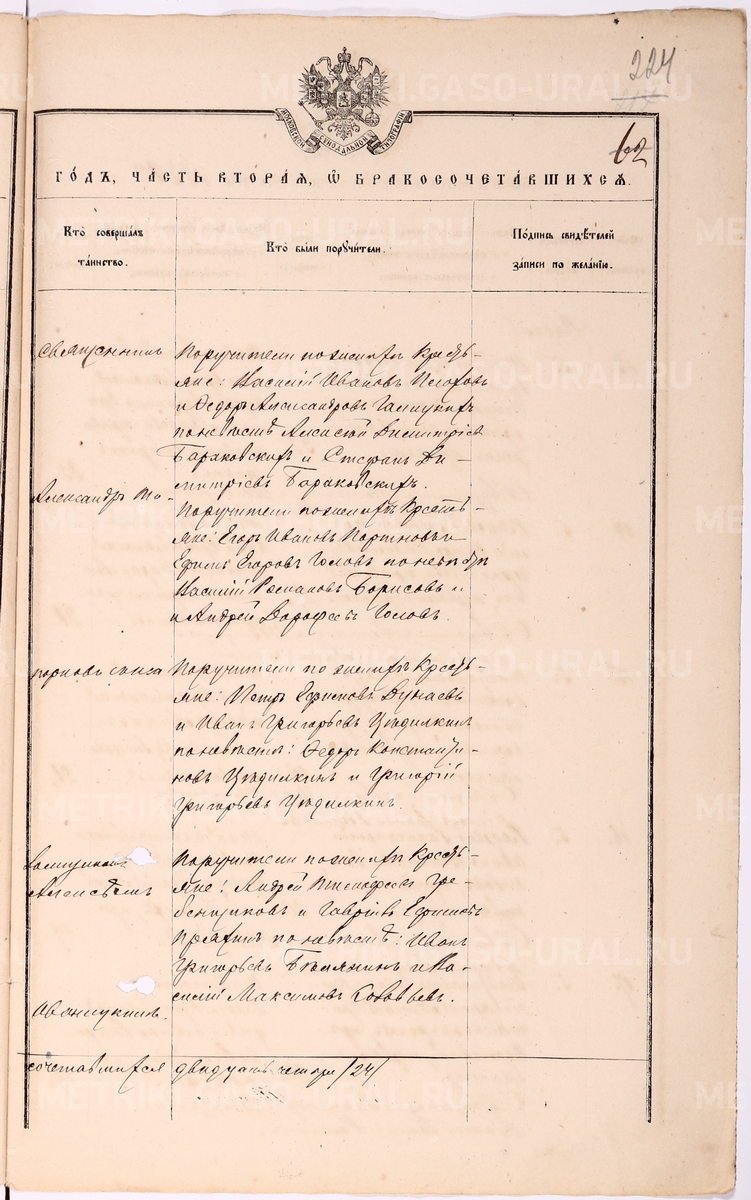 224
62
МОСКОВСКОЙ СѴНОДАЛЬНОЙ ТИПОГРАФІИ
ГО́ДЪ, ЧА́СТЬ ВТОРА́Я, Ѡ҆ БРАКОСОЧЕТА́ВШИХСЯ.
Кто̀ соверша́лъ
та́инство.
Кто̀ бы́ли поручи́тели.
По́дпись свидѣ́телей
за́писи по жела́нію.
Священникъ
Поручители по женихѣ крестья-
не: Василій Ивановъ
и Ѳедоръ Александровъ
по невѣстѣ Алексѣй Димитріевъ
Бараковскихъ и Стефанъ Ди-
митріевъ Бараковскихъ.
Александръ То-
Поручители по женихѣ крестья-
не: Егоръ Ивановъ Портновъ и
Ефимъ Егоровъ Головъ по невѣстѣ
Василій Романовъ Борисовъ и
и Андрей Дорофеевъ Головъ.
порковъ съ пса
Поручители по женихѣ крестья-
не: Петръ Ефимовъ Дунаевъ
и Иванъ Григорьевъ
по невѣстѣ: Ѳедоръ Константи-
новъ и Григорій
Григорьевъ
ломщикомъ
Алексѣемъ
Поручители по женихѣ крестья-
не: Андрей Тимофеевъ Гре-
бенщиковъ и Гавріилъ Ефимовъ
по невѣстѣ: Иванъ
Григорьевъ и Ва-
силій Максимовъ
Иванцукимъ.
сочетавшихся двадцать четыре /24/
METRIKI.GASO-URAL.RU